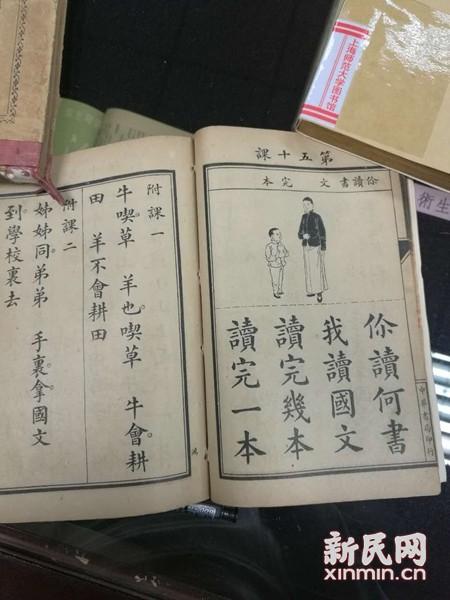 上海师范大学图书馆
第五十課
伱讀書 文 完 本
伱讀何書
我讀國文
讀完幾本
讀完一本
中華書局印行
附課一
牛喫草 羊也喫草 牛會耕
田 羊不會耕田
附課二
姊姊同弟弟 手裏拿國文
到學校裏去
術生
新民网
xinmin.cn